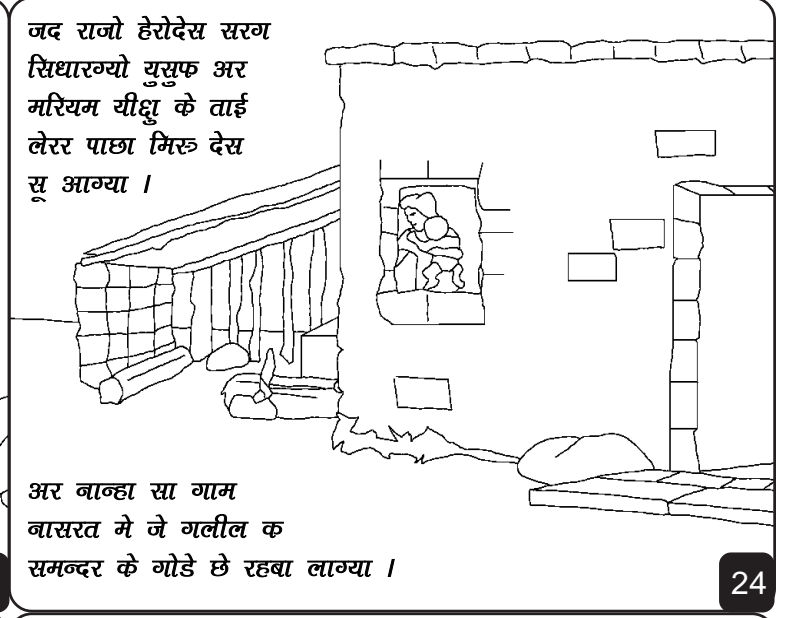 जद राजो हेरोदेस सरग
सिधारग्यो युसुफ अर
मरियम यीशु के ताई
लेरर पाछा मिस्त्र देस
सू आग्या ।
अर नान्हा सा गाम
नासरत मे जे गलील क
समन्दर के गोडे छे रहबा लाग्या ।
24